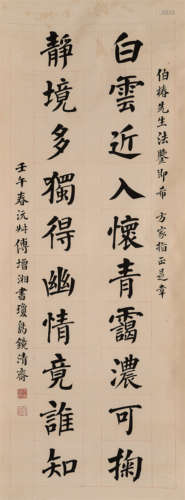 伯椿先生法鑒即希 方家指正是幸
白雲近入懷青靄濃可掬
靜境多獨得幽情竟誰知
壬午春沅叔傅增湘書瓊島鏡清齋